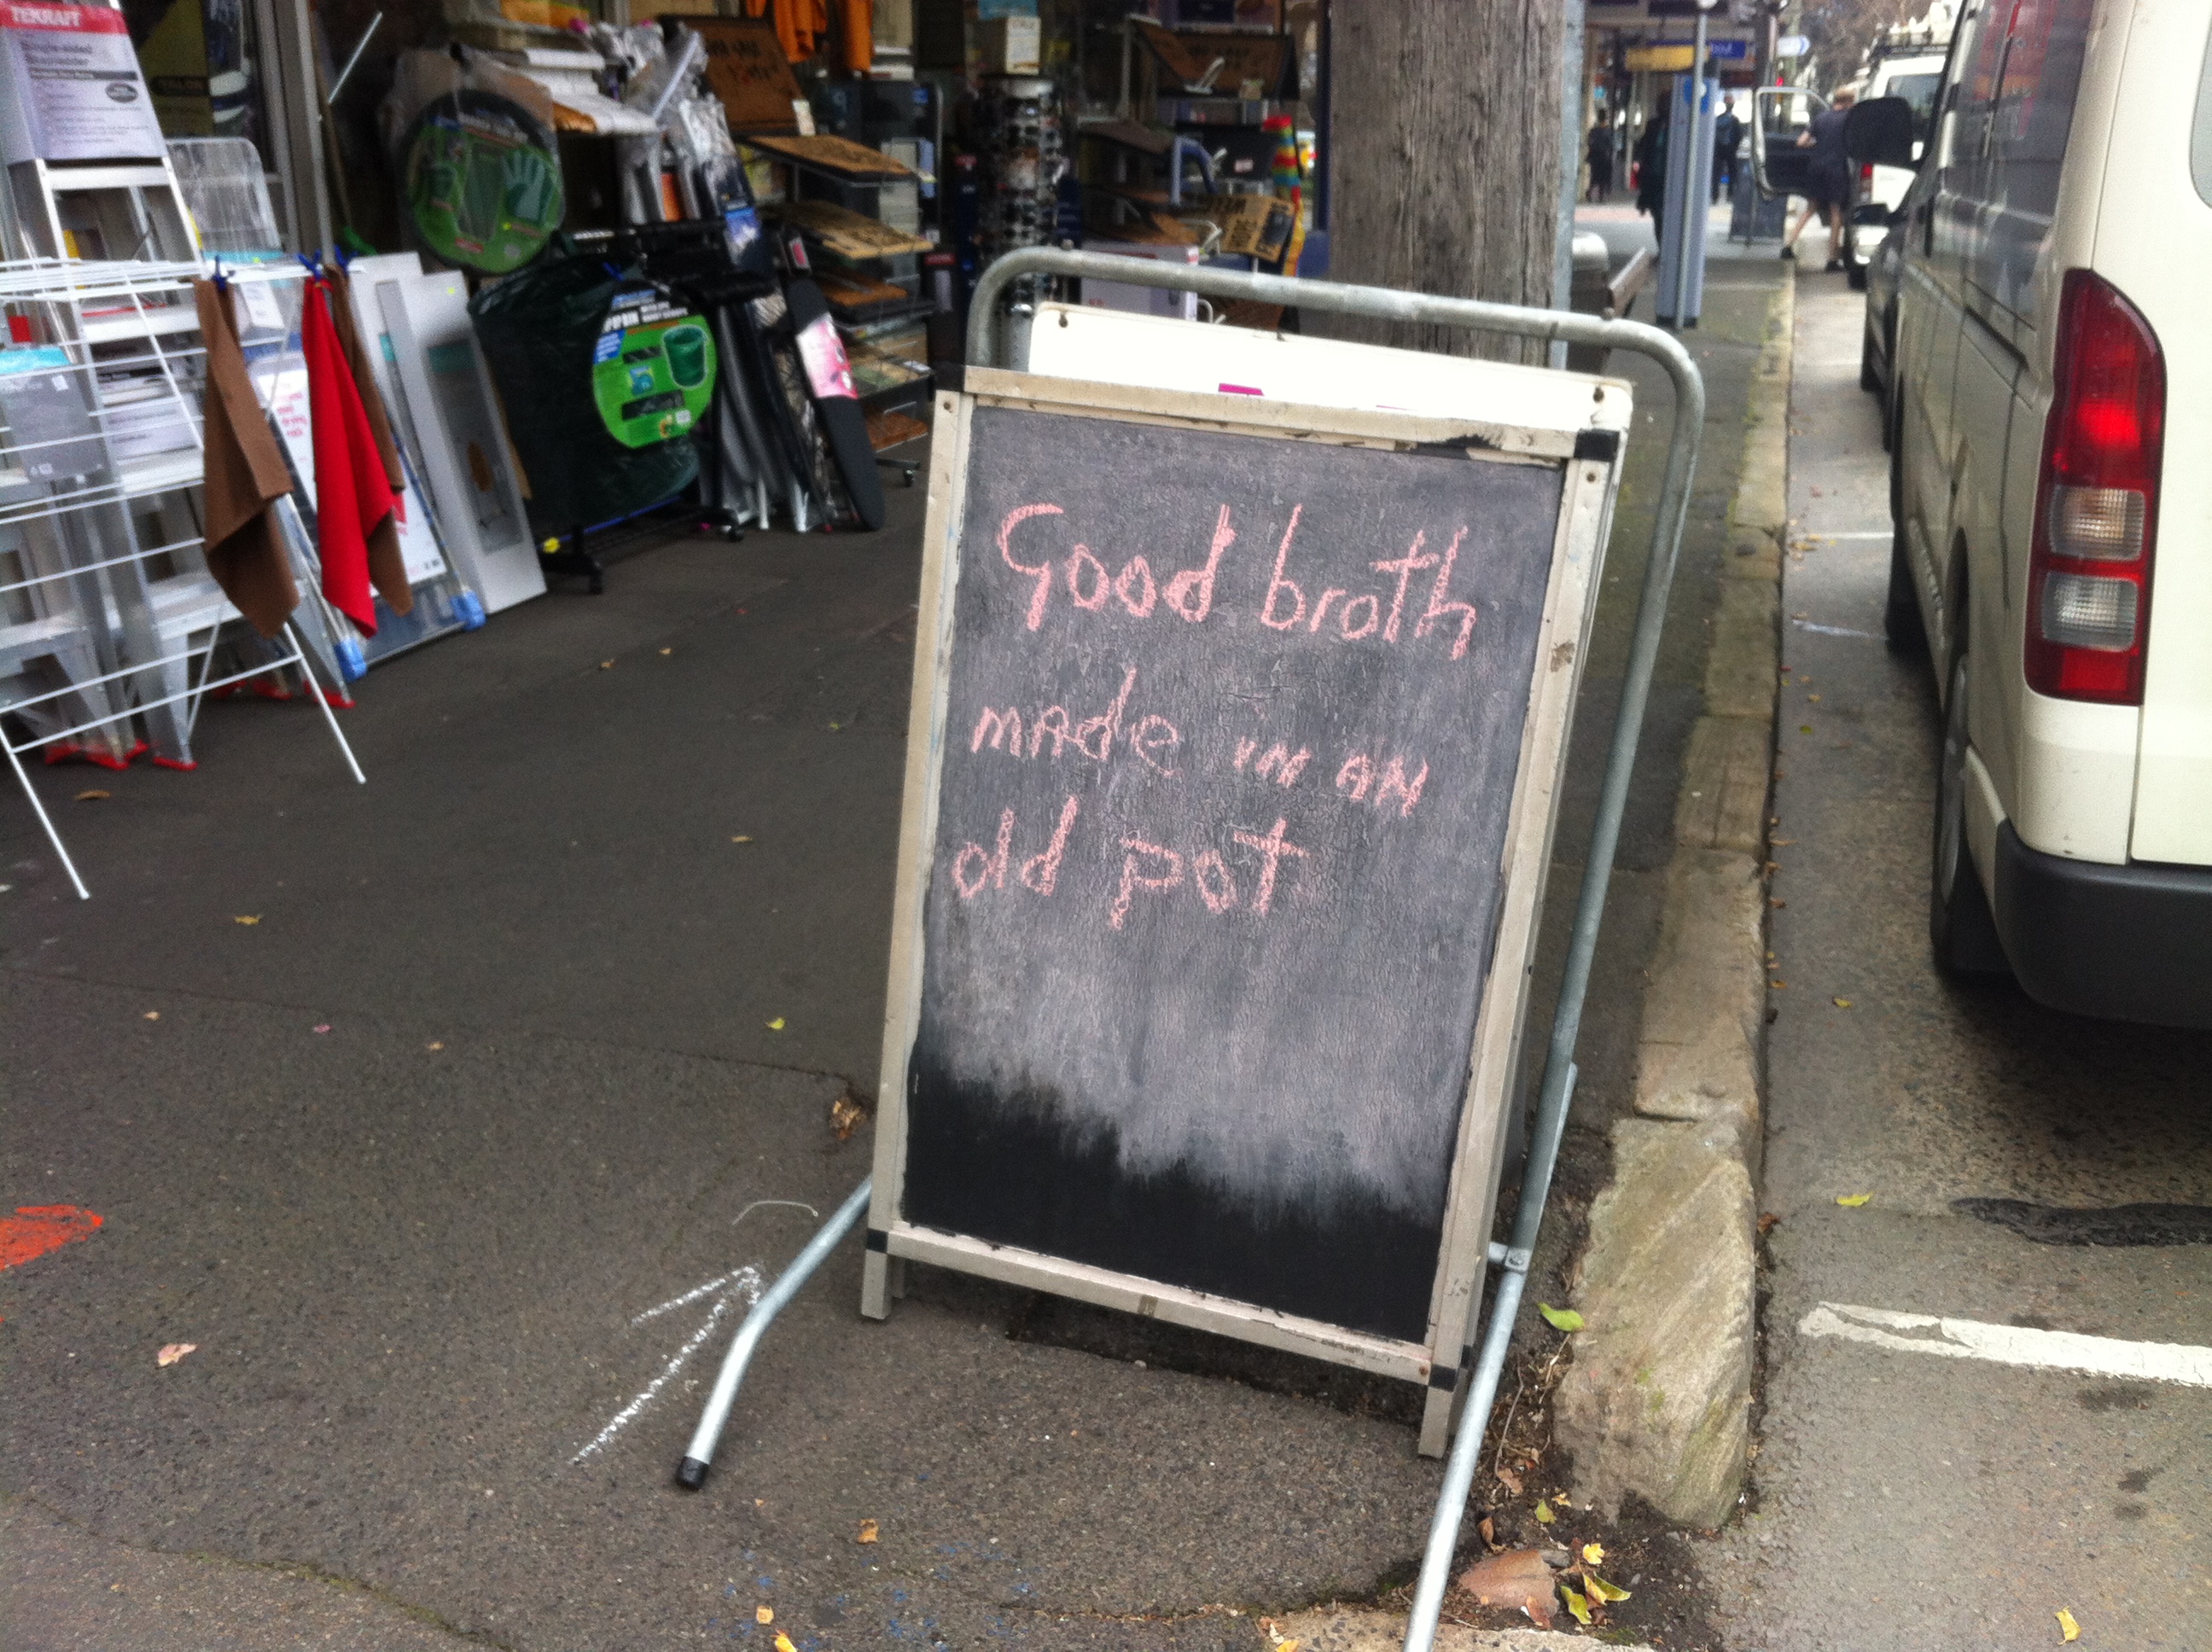 Good broth
made in an
old pot
TEKRAFT